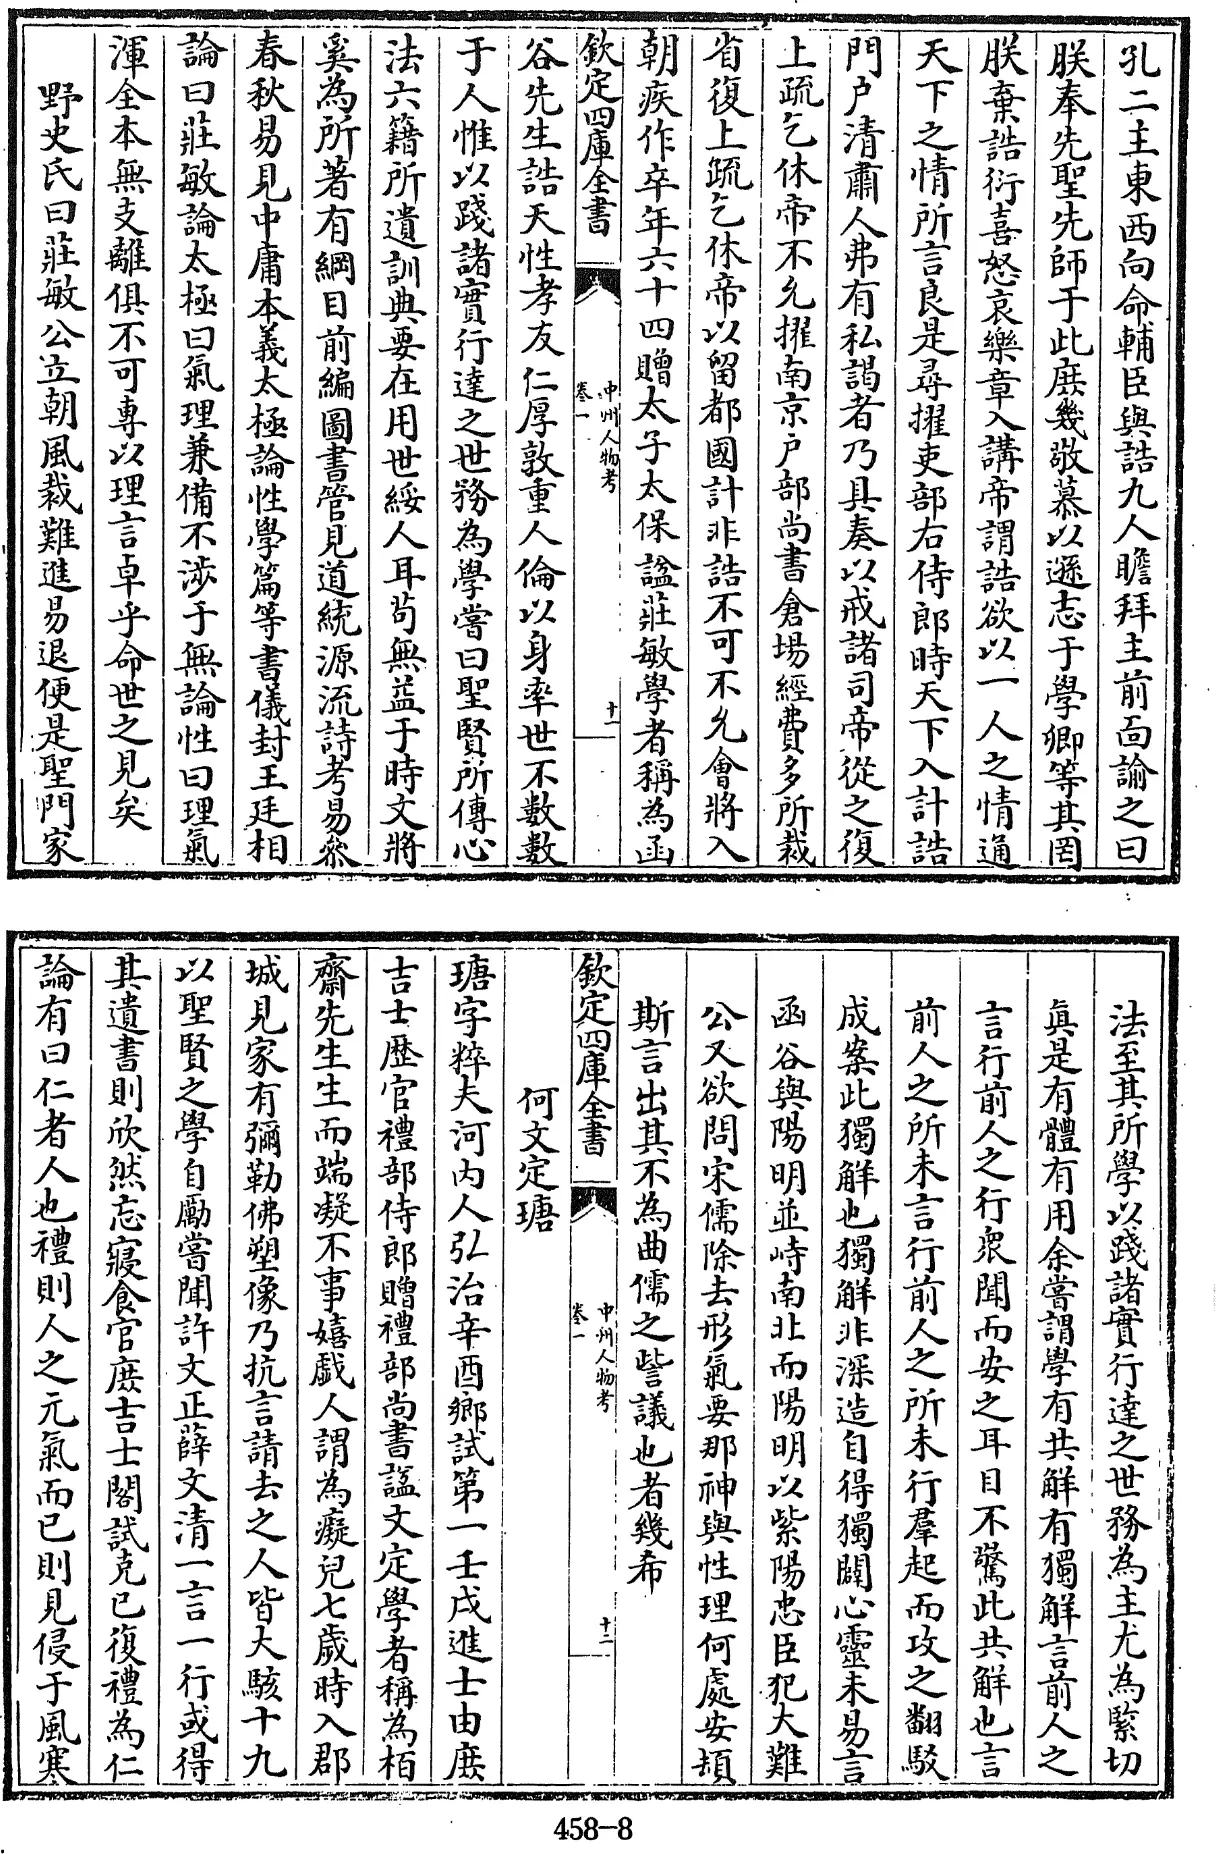 孔二主東西向命輔臣與誥九人瞻拜主前面諭之曰
朕奉先聖先師于此庶幾敬慕以遜志于學卿等其罔
朕棄誥衍喜怒哀樂章入講帝謂誥欲以一人之情通
天下之情所言良是尋擢吏部右侍郎時天下入計誥
門户清肅人弗有私謁者乃具奏以戒諸司帝從之復
上疏乞休帝不允擢南京户部尚書倉場經費多所裁
省復上疏乞休帝以留都國計非誥不可不允會將入
朝疾作卒年六十四贈太子太保諡莊敏學者稱為函
欽定四庫全書
中州人物考
卷一
十一
谷先生誥天性孝友仁厚敦重人倫以身率世不數數
于人惟以踐諸實行達之世務為學嘗曰聖賢所傳心
法六籍所遺訓典要在用世綏人耳茍無益于時文將
奚為所著有綱目前編圖書管見道統源流詩考易叅
春秋易見中庸本義太極論性學篇等書儀封王廷相
論曰莊敏論太極曰氣理兼備不涉于無論性曰理氣
渾全本無支離俱不可專以理言卓乎命世之見矣
野史氏曰莊敏公立朝風裁難進易退便是聖門家
法至其所學以踐諸實行達之世務為主尤為緊切
真是有體有用余嘗謂學有共解有獨解言前人之
言行前人之行衆聞而安之耳目不驚此共解也言
前人之所未言行前人之所未行羣起而攻之翻駁
成案此獨解也獨解非深造自得獨闢心靈未易言
函谷與陽明並峙南北而陽明以紫陽忠臣犯大難
公又欲問宋儒除去形氣要那神與性理何處安頓
斯言出其不為曲儒之訾議也者幾希
欽定四庫全書
中州人物考
卷一
十二
何文定瑭
瑭字粹夫河内人弘治辛酉鄉試第一壬戌進士由庶
吉士歷官禮部侍郎贈禮部尚書諡文定學者稱為栢
齋先生生而端凝不事嬉戲人謂為癡兒七歲時入郡
城見家有彌勒佛塑像乃抗言請去之人皆大駭十九
以聖賢之學自勵嘗聞許文正薛文清一言一行或得
其遺書則欣然忘寢食官庶吉士閣試克已復禮為仁
論有曰仁者人也禮則人之元氣而已則見侵于風寒
458-8